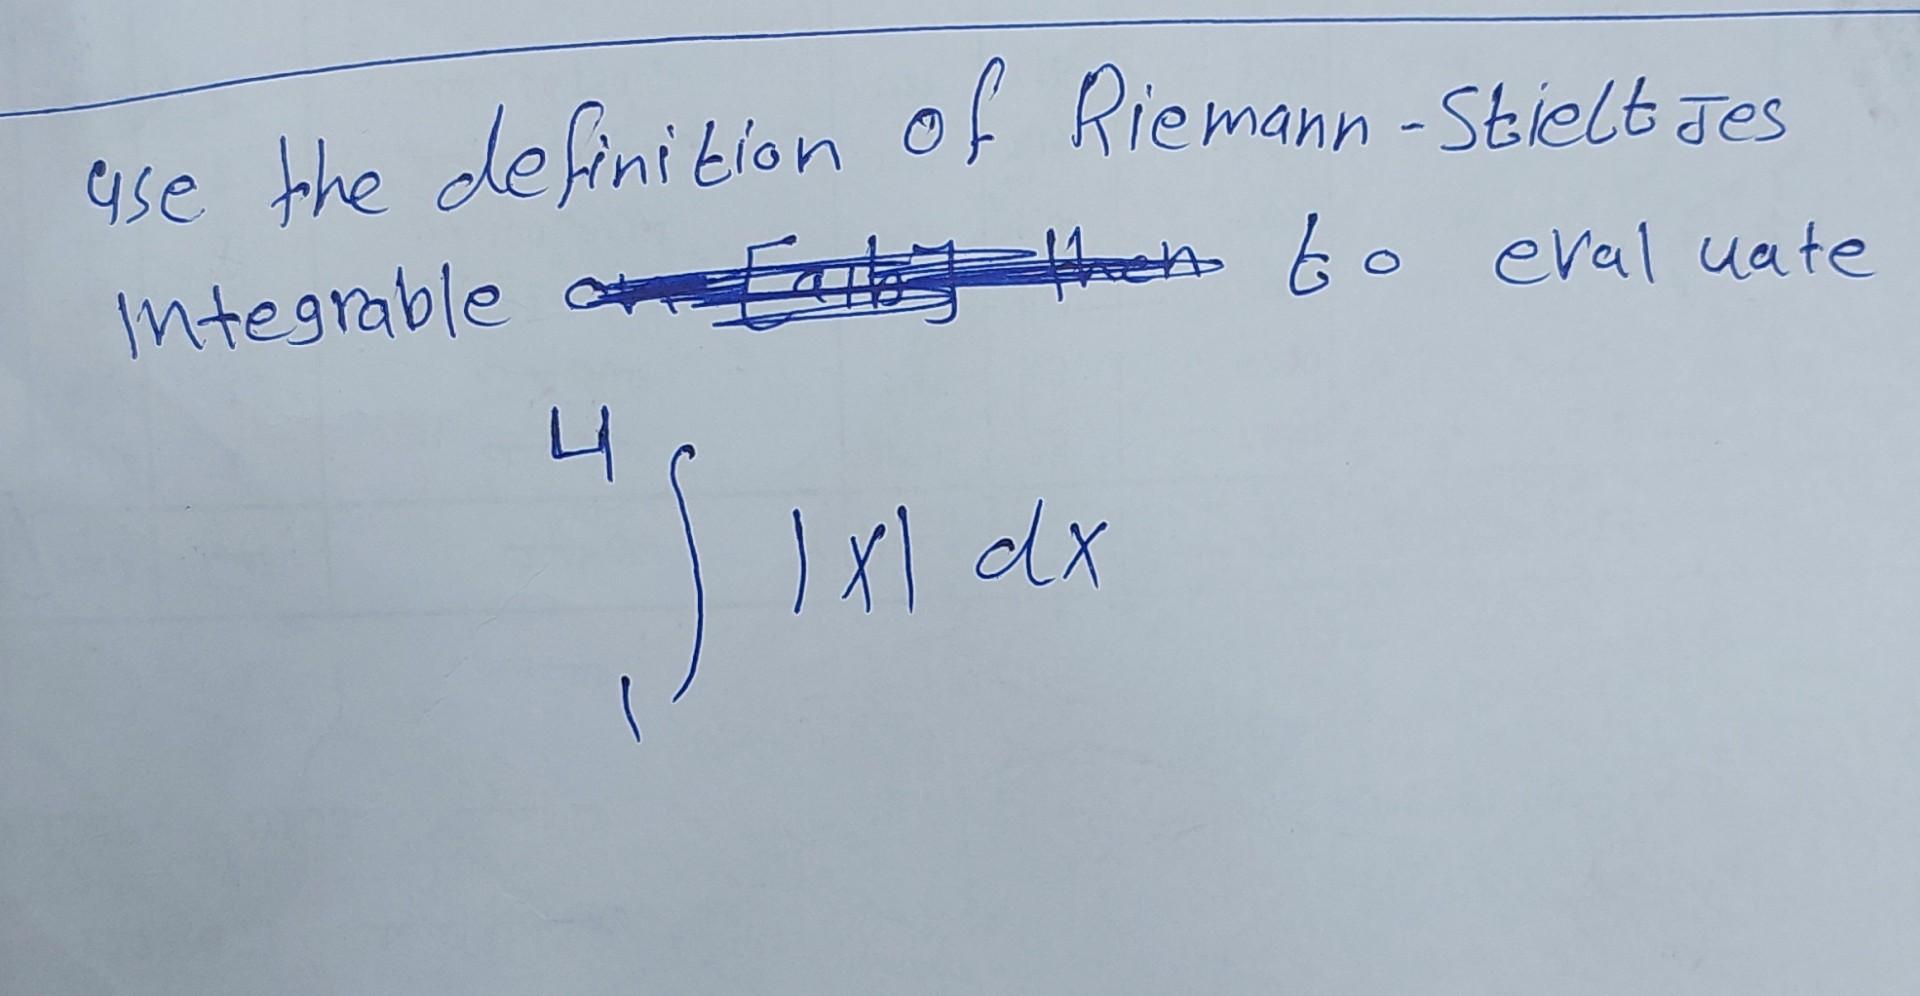 use the definition of Riemann-Stieltjes
Integrable to evaluate
4
∫ |x| dx
1